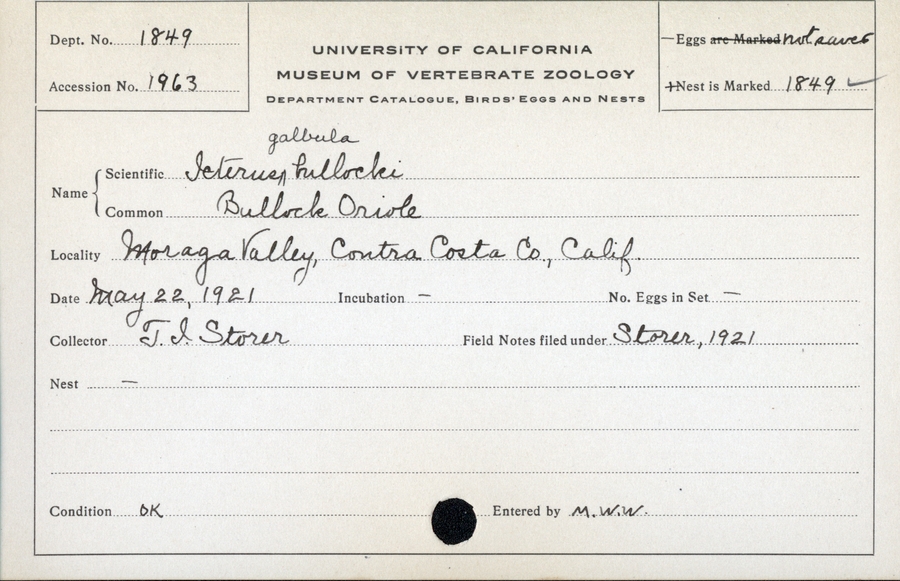 Dept. No. 1849
Accession No. 1963
UNIVERSITY OF CALIFORNIA
MUSEUM OF VERTEBRATE ZOOLOGY
DEPARTMENT CATALOGUE, BIRDS' EGGS AND NESTS
—Eggs are Marked not saved
+Nest is Marked 1849 ✓
galbula
Name { Scientific Icterus ‸ bullocki
Common Bullock Oriole
Locality Moraga Valley, Contra Costa Co., Calif.
Date May 22, 1921 Incubation — No. Eggs in Set —
Collector T. I. Storer Field Notes filed under Storer, 1921
Nest —
Condition OK Entered by M.W.W.